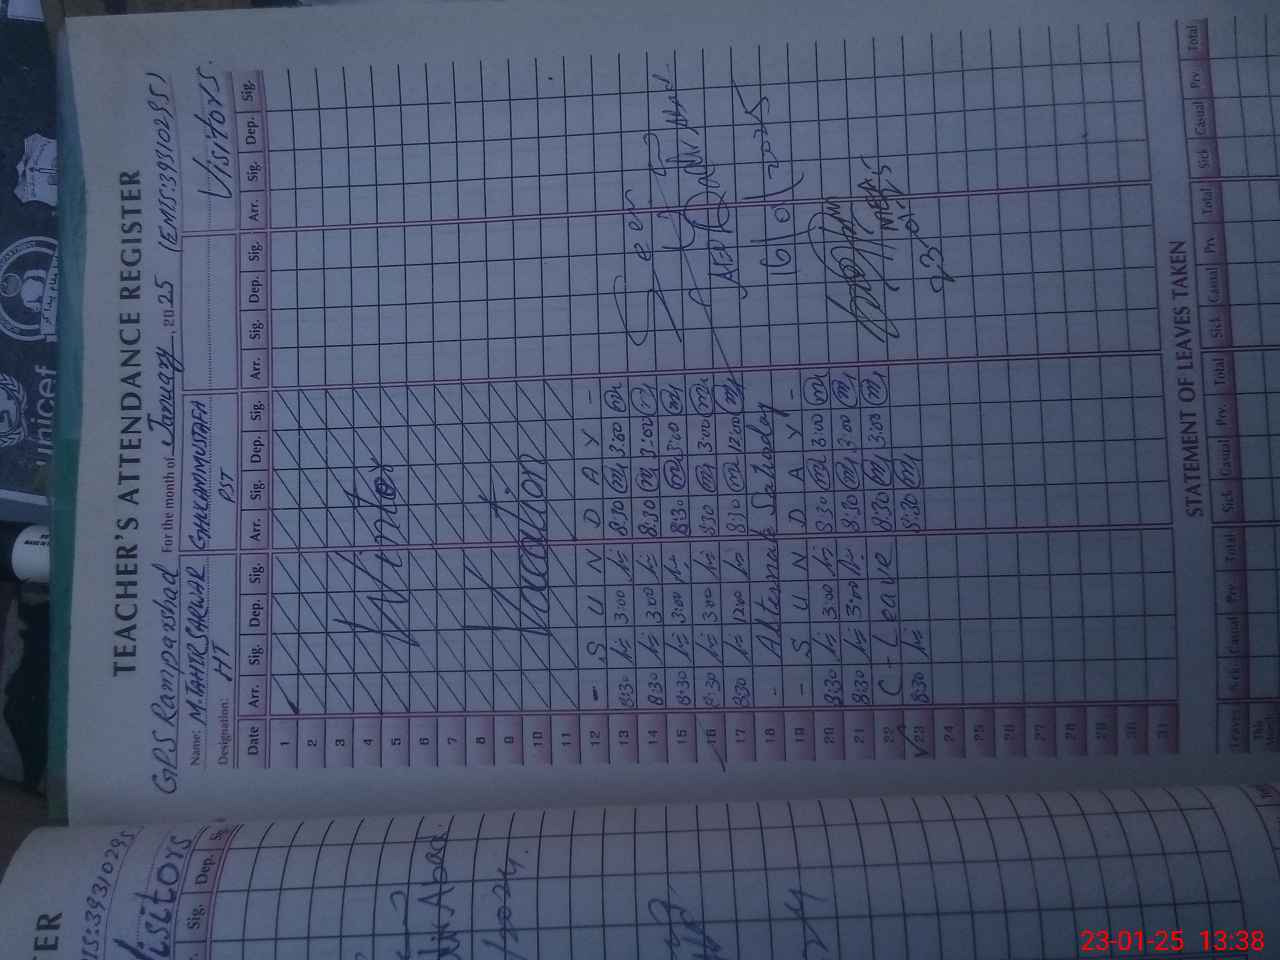 TEACHER'S ATTENDANCE REGISTER
GPS Ramparshad For the month of January, 2025 (EMIS:39310295)
Name: M.TAHIR SARWAR GHULAM MUSTAFA Visitors.
Designation: HT PST
Date Arr. Sig. Dep. Sig. Arr. Sig. Dep. Sig. Arr. Sig. Dep. Sig. Arr. Sig. Dep. Sig.
1
2
3
4 Winter
5
6
7
8
9 Vacation
10
11
12 - S U N D A Y -
13 8:30 3:00 8:30 3:00
14 8:30 3:00 8:30 3:00 Seen
15 8:30 3:00 8:30 3:00
16 8:30 3:00 8:30 3:00 AEO
17 8:30 12:00 8:30 12:00
18 - Alternate Saturday 16/01/2025
19 - S U N D A Y -
20 8:30 3:00 8:30 3:00
21 8:30 3:00 8:30 3:00
22 C - Leave 8:30 3:00 MEA
23 8:30 8:30 23-01-25
24
25
26
27
28
29
30
31
STATEMENT OF LEAVES TAKEN
Leaves Sick Casual Prv. Total Sick Casual Prv. Total Sick Casual Prv. Total Sick Casual Prv. Total
This
unicef
TER
Visitors
Sig. Dep.
23-01-25 13:38